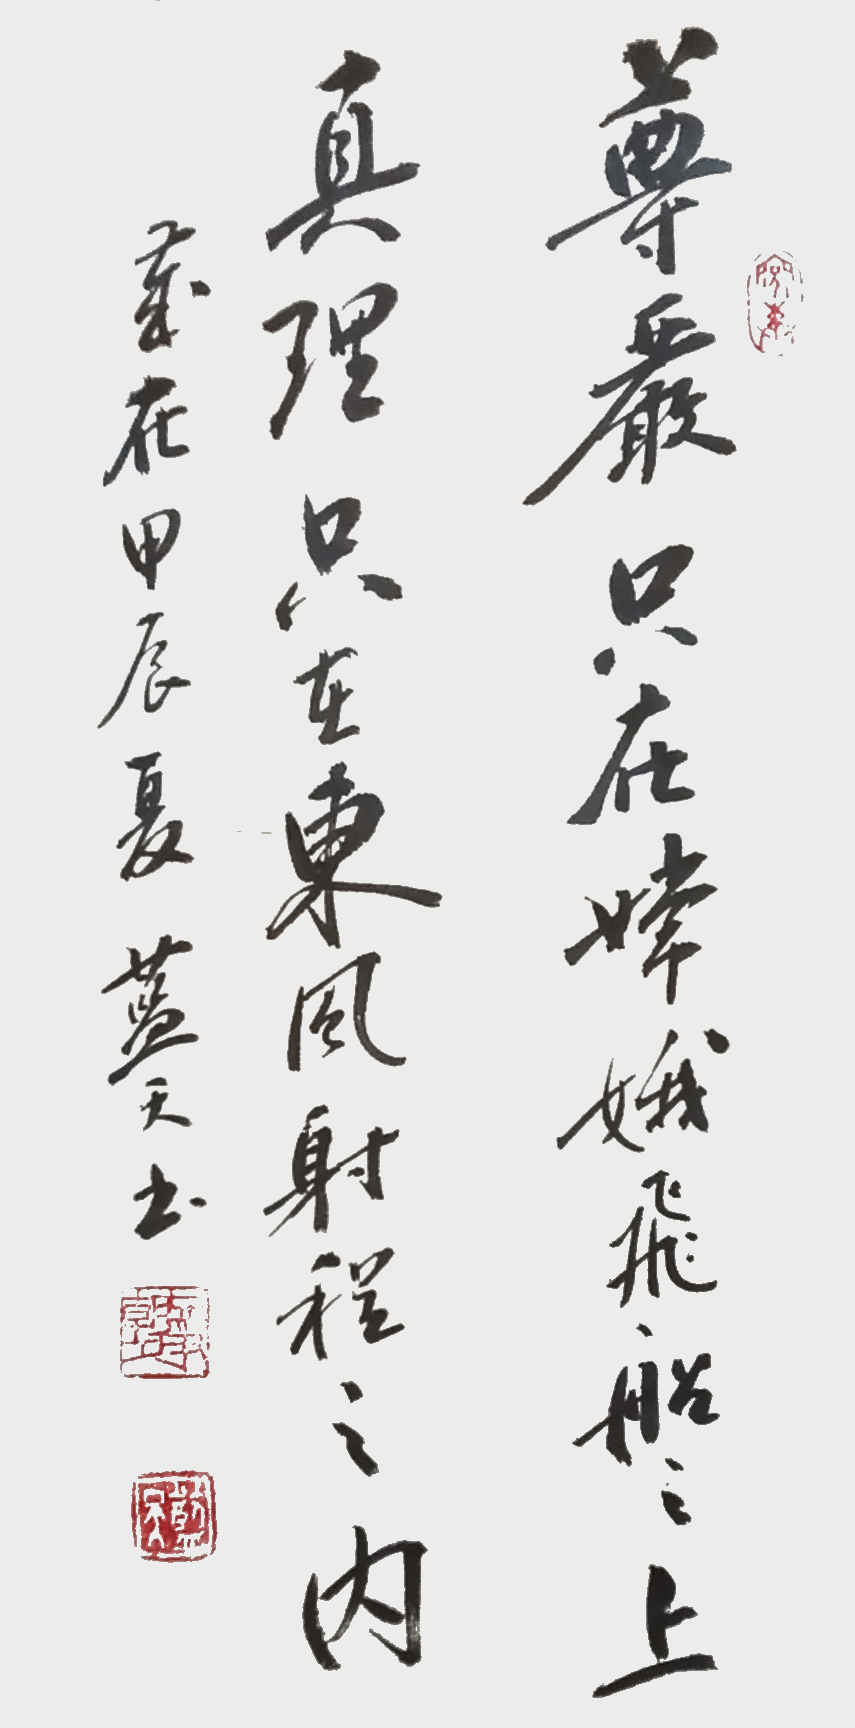 尊嚴只在嫦娥飛船之上
真理只在東風射程之内
歲在甲辰夏藍天书